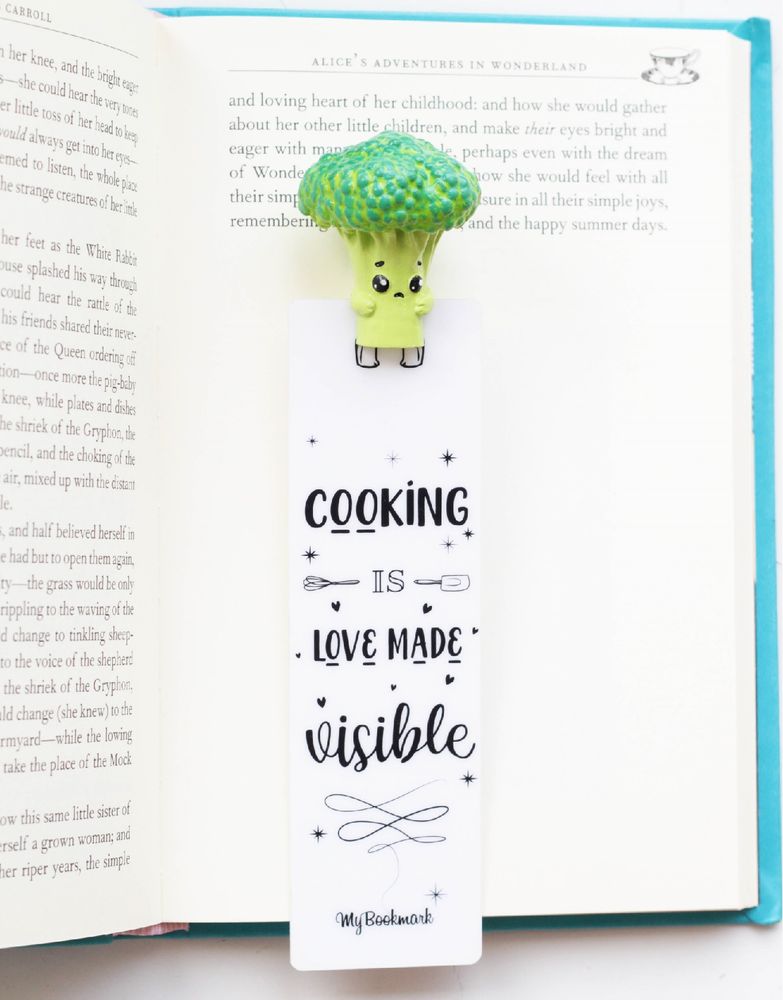 CARROLL
her knee, and the bright eager
—she could hear the very tones
little toss of her head to keep
would always get into her eyes—
to listen, the whole place
the strange creatures of her little
her feet as the White Rabbit
splashed his way through
could hear the rattle of the
his friends shared their never-
of the Queen ordering off
—once more the pig-baby
knee, while plates and dishes
the shriek of the Gryphon, the
pencil, and the choking of the
air, mixed up with the distant
and half believed herself in
had but to open them again,
—the grass would be only
rippling to the waving of the
change to tinkling sheep-
to the voice of the shepherd
the shriek of the Gryphon,
change (she knew) to the
—while the lowing
take the place of the Mock
this same little sister of
a grown woman; and
her riper years, the simple
ALICE'S ADVENTURES IN WONDERLAND
and loving heart of her childhood: and how she would gather
about her other little children, and make their eyes bright and
eager with perhaps even with the dream
of how she would feel with all
their in all their simple joys,
remembering and the happy summer days.
COOKING
IS
LOVE MADE
visible
MyBookmark